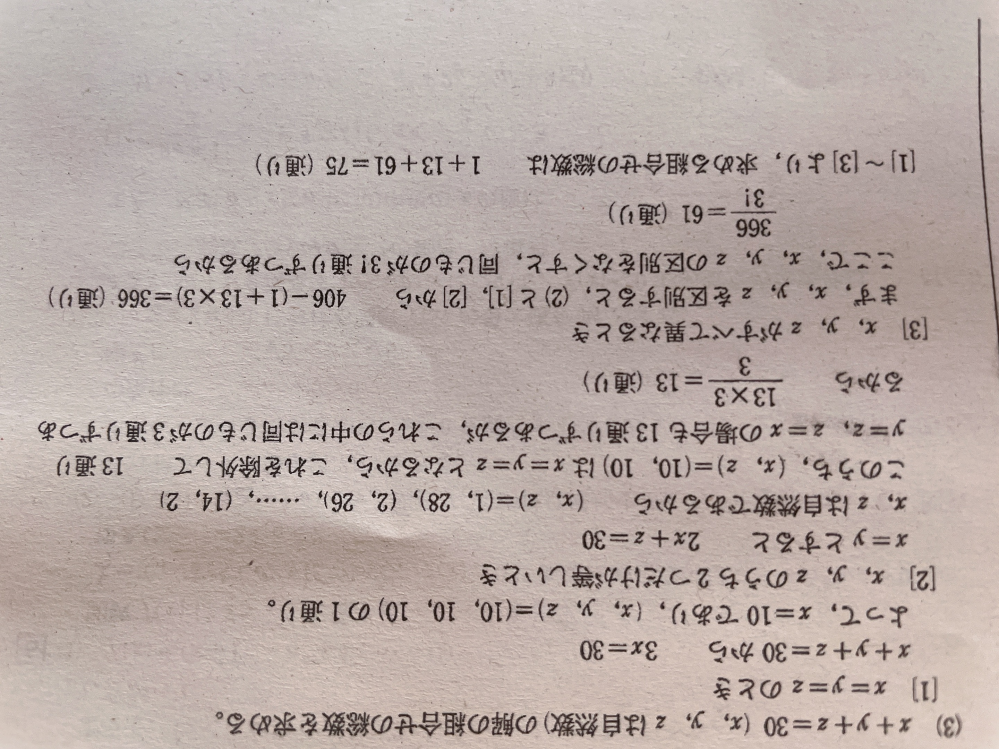 (3) x+y+z=30 (x, y, z は自然数) の解の組合せの総数を求める。
[1] x=y=z のとき
x+y+z=30 から 3x=30
よって, x=10 であり, (x, y, z)=(10, 10, 10) の 1 通り。
[2] x, y, z のうち 2 つだけが等しいとき
x=y とすると 2x+z=30
x, z は自然数であるから (x, z)=(1, 28), (2, 26), ……, (14, 2)
このうち, (x, z)=(10, 10) は x=y=z となるから, これを除外して 13 通り
y=z, z=x の場合も 13 通りずつあるが, これらの中には同じものが 3 通りずつあ
るから 13×3/3=13 (通り)
[3] x, y, z がすべて異なるとき
まず, x, y, z を区別すると, (2) と [1], [2] から 406-(1+13×3)=366 (通り)
ここで, x, y, z の区別をなくすと, 同じものが 3! 通りずつあるから
366/3!=61 (通り)
[1]~[3] より, 求める組合せの総数は 1+13+61=75 (通り)